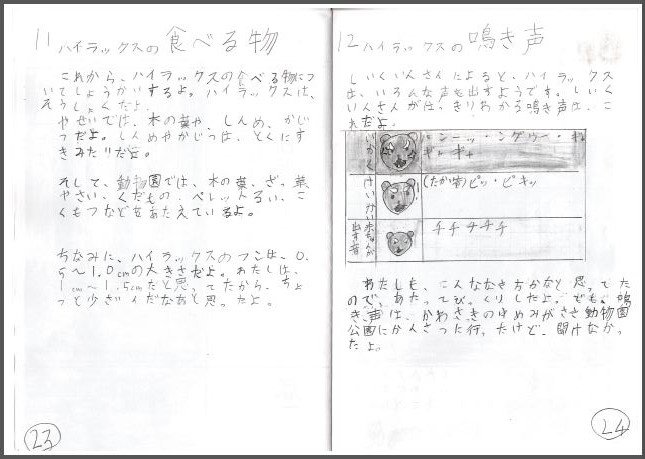 11 ハイラックスの食べる物
これから、ハイラックスの食べる物につ
いてしょうかいするよ。ハイラックスは、
そうしょくだよ。
やせいでは、木の葉や、しんめ、かじ
つだよ。しんめやかじつは、とくにす
きみたいだよ。
そして、動物園では、木の葉、ざっ草
やさい、くだもの、ペレットるい、こ
くもつなどをあたえているよ。
ちなみに、ハイラックスのフンは、0.
5〜1.0cmの大きさだよ。わたしは、
1cm〜1.5cmだと思ってたから、ちょ
っと小さいんだなあと思ったよ。
23
12 ハイラックスの鳴き声
しいくいんさんによると、ハイラックス
は、いろんな声を出すようです。しいく
いんさんが、はっきりわかる鳴き声は、こ
れだよ。
いかく
けいかい
(たか音)ピッ・ピキッ
チチチチチ
わたしも、こんななき方かなと思ってた
ので、あたってびっくりしたよ。でも、鳴
き声は、かわさきのゆめみがさき動物園
公園にかんさつに行ったけど、聞けなかっ
たよ。
24